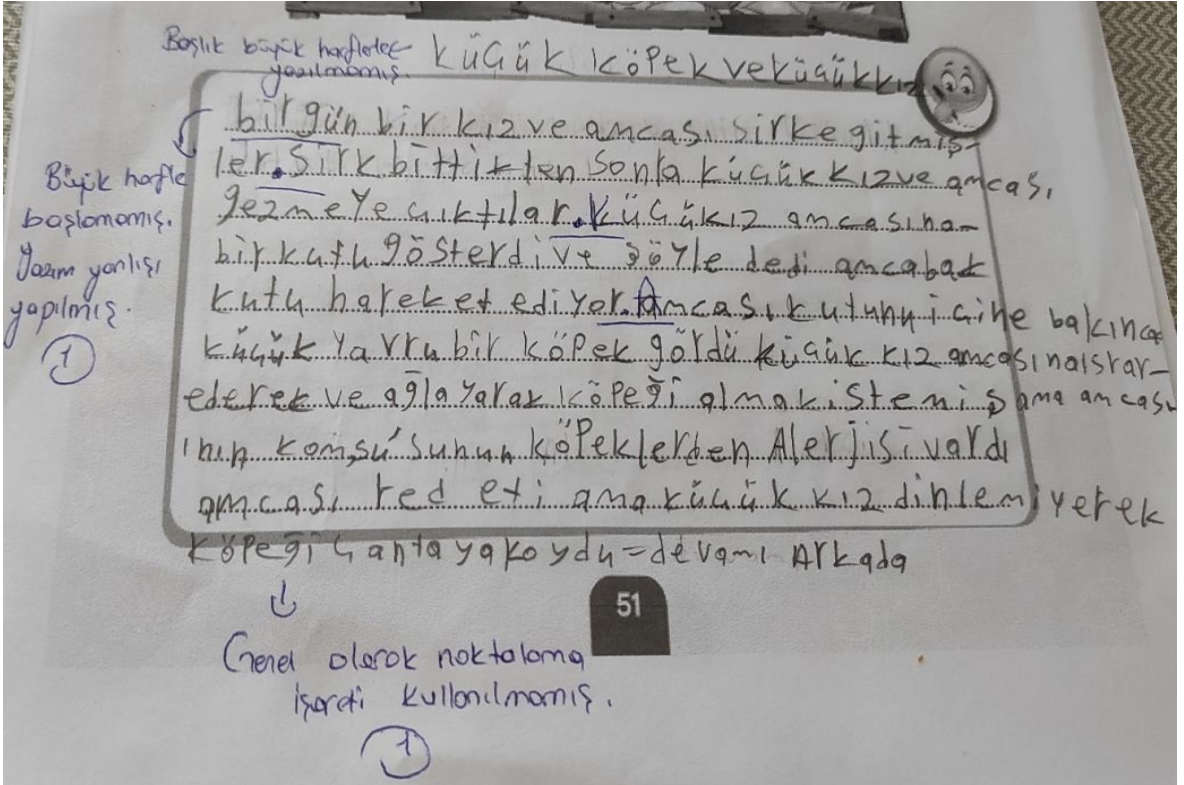 Başlık büyük harflerle
yazılmamış.
küçük köpek veküçükkız
birgün bir kız ve amcası sirke gitmiş-
ler. Sirk bittikten sonra küçük kızve amcası
gezmeye çıktılar. küçükız amcasına
bir kutu gösterdi ve şöyle dedi amcabak
kutu hareket ediyor. Amcası kutunu içine bakınca
küçük Yavru bir köpek gördü küçük kız amcasınaısrar-
ederek ve ağlayarak köpeği almakistemiş ama amcası
ının komşusunun köpeklerden Alerjisi vardı
amcası red eti ama küçük kız dinlemiyerek
köpeği çantayakoydu=devamı Arkada
Büyük harfle
başlamamış.
Yazım yanlışı
yapılmış.
1
51
Genel olarak noktalama
işareti kullanılmamış.
1